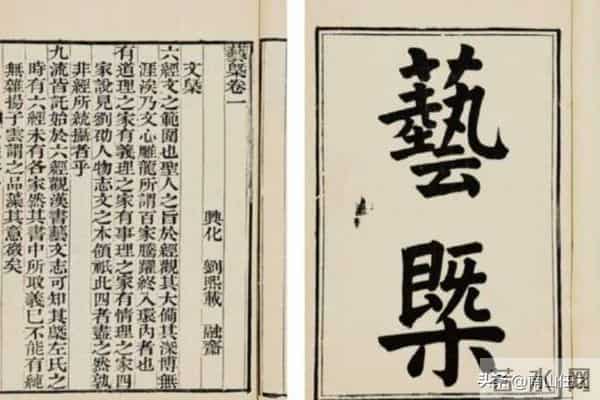 藝槩
藝槩卷一
興化 劉熙載 融齋
文槩
六經文之範圍也聖人之旨於經觀其大備其深博無
涯涘乃文心雕龍所謂百家騰躍終入環內者也
有道理之家有義理之家有事理之家有情理之家四
家說見劉劭人物志文之本領祇此四者盡之然孰
非經所統攝者乎
九流皆託始於六經觀漢書藝文志可知其槩左氏之
時有六經未有各家然其書中所取義已不能有純
無雜揚子雲謂之品藻其意微矣
头条